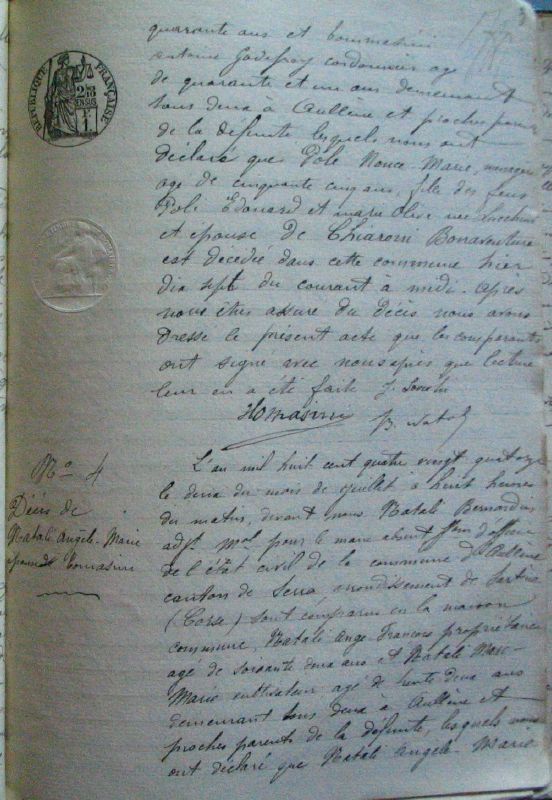 quarante ans et
antoine Godefroy cordonnier age
de quarante et un ans demeurant
tous deux à Aullène et proches parents
de la défunte lesquels nous ont
déclaré que Poli Nonce-Marie, menagère
age de cinquante cinq ans, fille des feus
Poli Edouard et marie Olive née
et epouse de Chiaroni Bonaventure
est décédée dans cette commune hier
dix sept du courant à midi. Après
nous être assuré du décès nous avons
Dressé le présent acte que les comparants
ont signé avec nous après que lecture
leur en a été faite
Tomasini
B. Natali
RÉPUBLIQUE FRANÇAISE
No 4
Décès de
Natali Angèle-Marie
epouse Tomasini
L'an mil huit cent quatre vingt quatorze
le deux du mois de juillet à huit heures
du matin, devant nous Natali Bernardin
adjt mal pour le maire absent, fons d'officier
de l'état civil de la commune d'Aullène
canton de Serra, arrondissement de Sartène
(Corse) sont comparus en la maison
commune, Natali Ange-Francois propriétaire
agé de soixante deux ans et Natali
Marie cultivateur agé de trente deux ans
demeurant tous deux à Aullène et
proches parents de la défunte, lesquels nous
ont déclaré que Natali Angèle-Marie